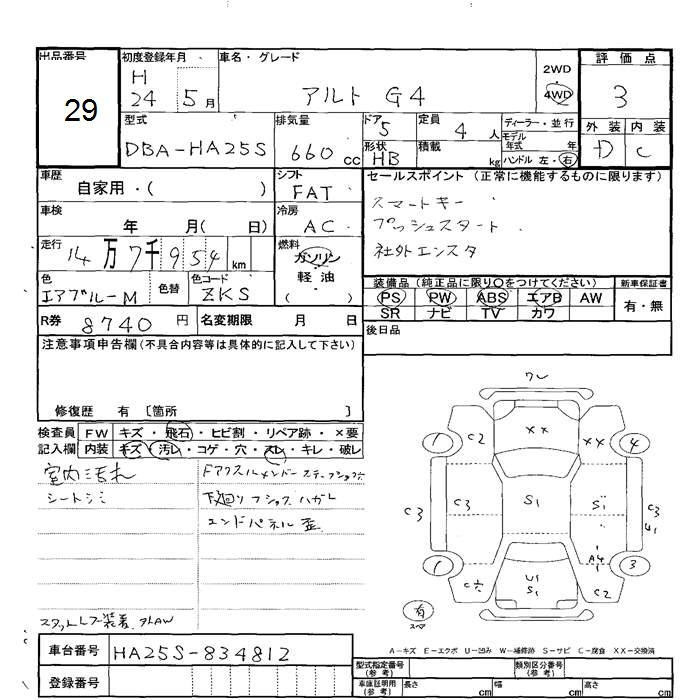 出品番号
29
初度登録年月
H
24 5月
車名・グレード
アルト G4
2WD
4WD
評価点
3
外装 内装
D C
型式
DBA-HA25S
排気量
660cc
ドア
5
形状
HB
定員
4人
積載
kg
ディーラー・並行
モデル
年式 年
ハンドル 左・右
車歴
自家用・( )
シフト
FAT
セールスポイント(正常に機能するものに限ります)
スマートキー
プッシュスタート
社外エンスタ
車検
年 月( 日)
冷房
AC
走行
14万7千954km
燃料
ガソリン
軽油
( )
色
エアブルーM
色替
色コード
ZKS
装備品(純正品に限り○をつけてください)
PS PW ABS エアB AW
SR ナビ TV カワ
新車保証書
有・無
R券
8740円
名変期限 月 日
後日品
注意事項申告欄(不具合内容等は具体的に記入して下さい)
修復歴 有 [箇所 ]
検査員
記入欄
FW キズ・飛石・ヒビ割・リペア跡・×要
内装 キズ・汚レ・コゲ・穴・スレ・キレ・破レ
室内汚れ
シートシミ
下廻りフショクハガレ
エンドパネル歪
ワレ
1 C2 XX XX 4
C3 C3 S1 S1 C3
U1
A4
1 C穴 U1 S1 C2 3
有
スペア
A−キズ E−エクボ U−凹み W−補修跡 S−サビ C−腐食 XX−交換済
車台番号
HA25S-834812
登録番号
型式指定番号
(参考)
類別区分番号
(参考)
車庫証明用
(参考)
長さ cm 幅 cm 高さ cm